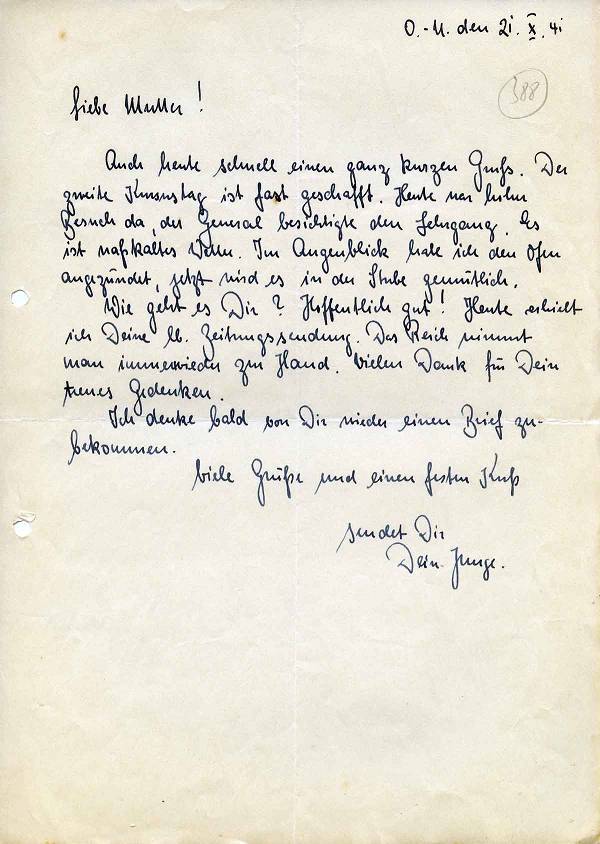 O.-U. den 21. X. 41
388
Liebe Mutter!
Auch heute schnell einen ganz kurzen Gruß. Der
zweite Kursustag ist fast geschafft. Heute war hoher
Besuch da, der General besichtigte den Lehrgang. Es
ist naßkaltes Wetter. Im Augenblick habe ich den Ofen
angezündet, jetzt wird es in der Stube gemütlich.
Wie geht es Dir? Hoffentlich gut! Heute erhielt
ich Deine lb. Zeitungssendung. Das Reich nimmt
man immerwieder zur Hand. Vielen Dank für Dein
treues Gedenken.
Ich denke bald von Dir wieder einen Brief zu-
bekommen.
Viele Grüße und einen festen Kuß
sendet Dir
Dein Junge.